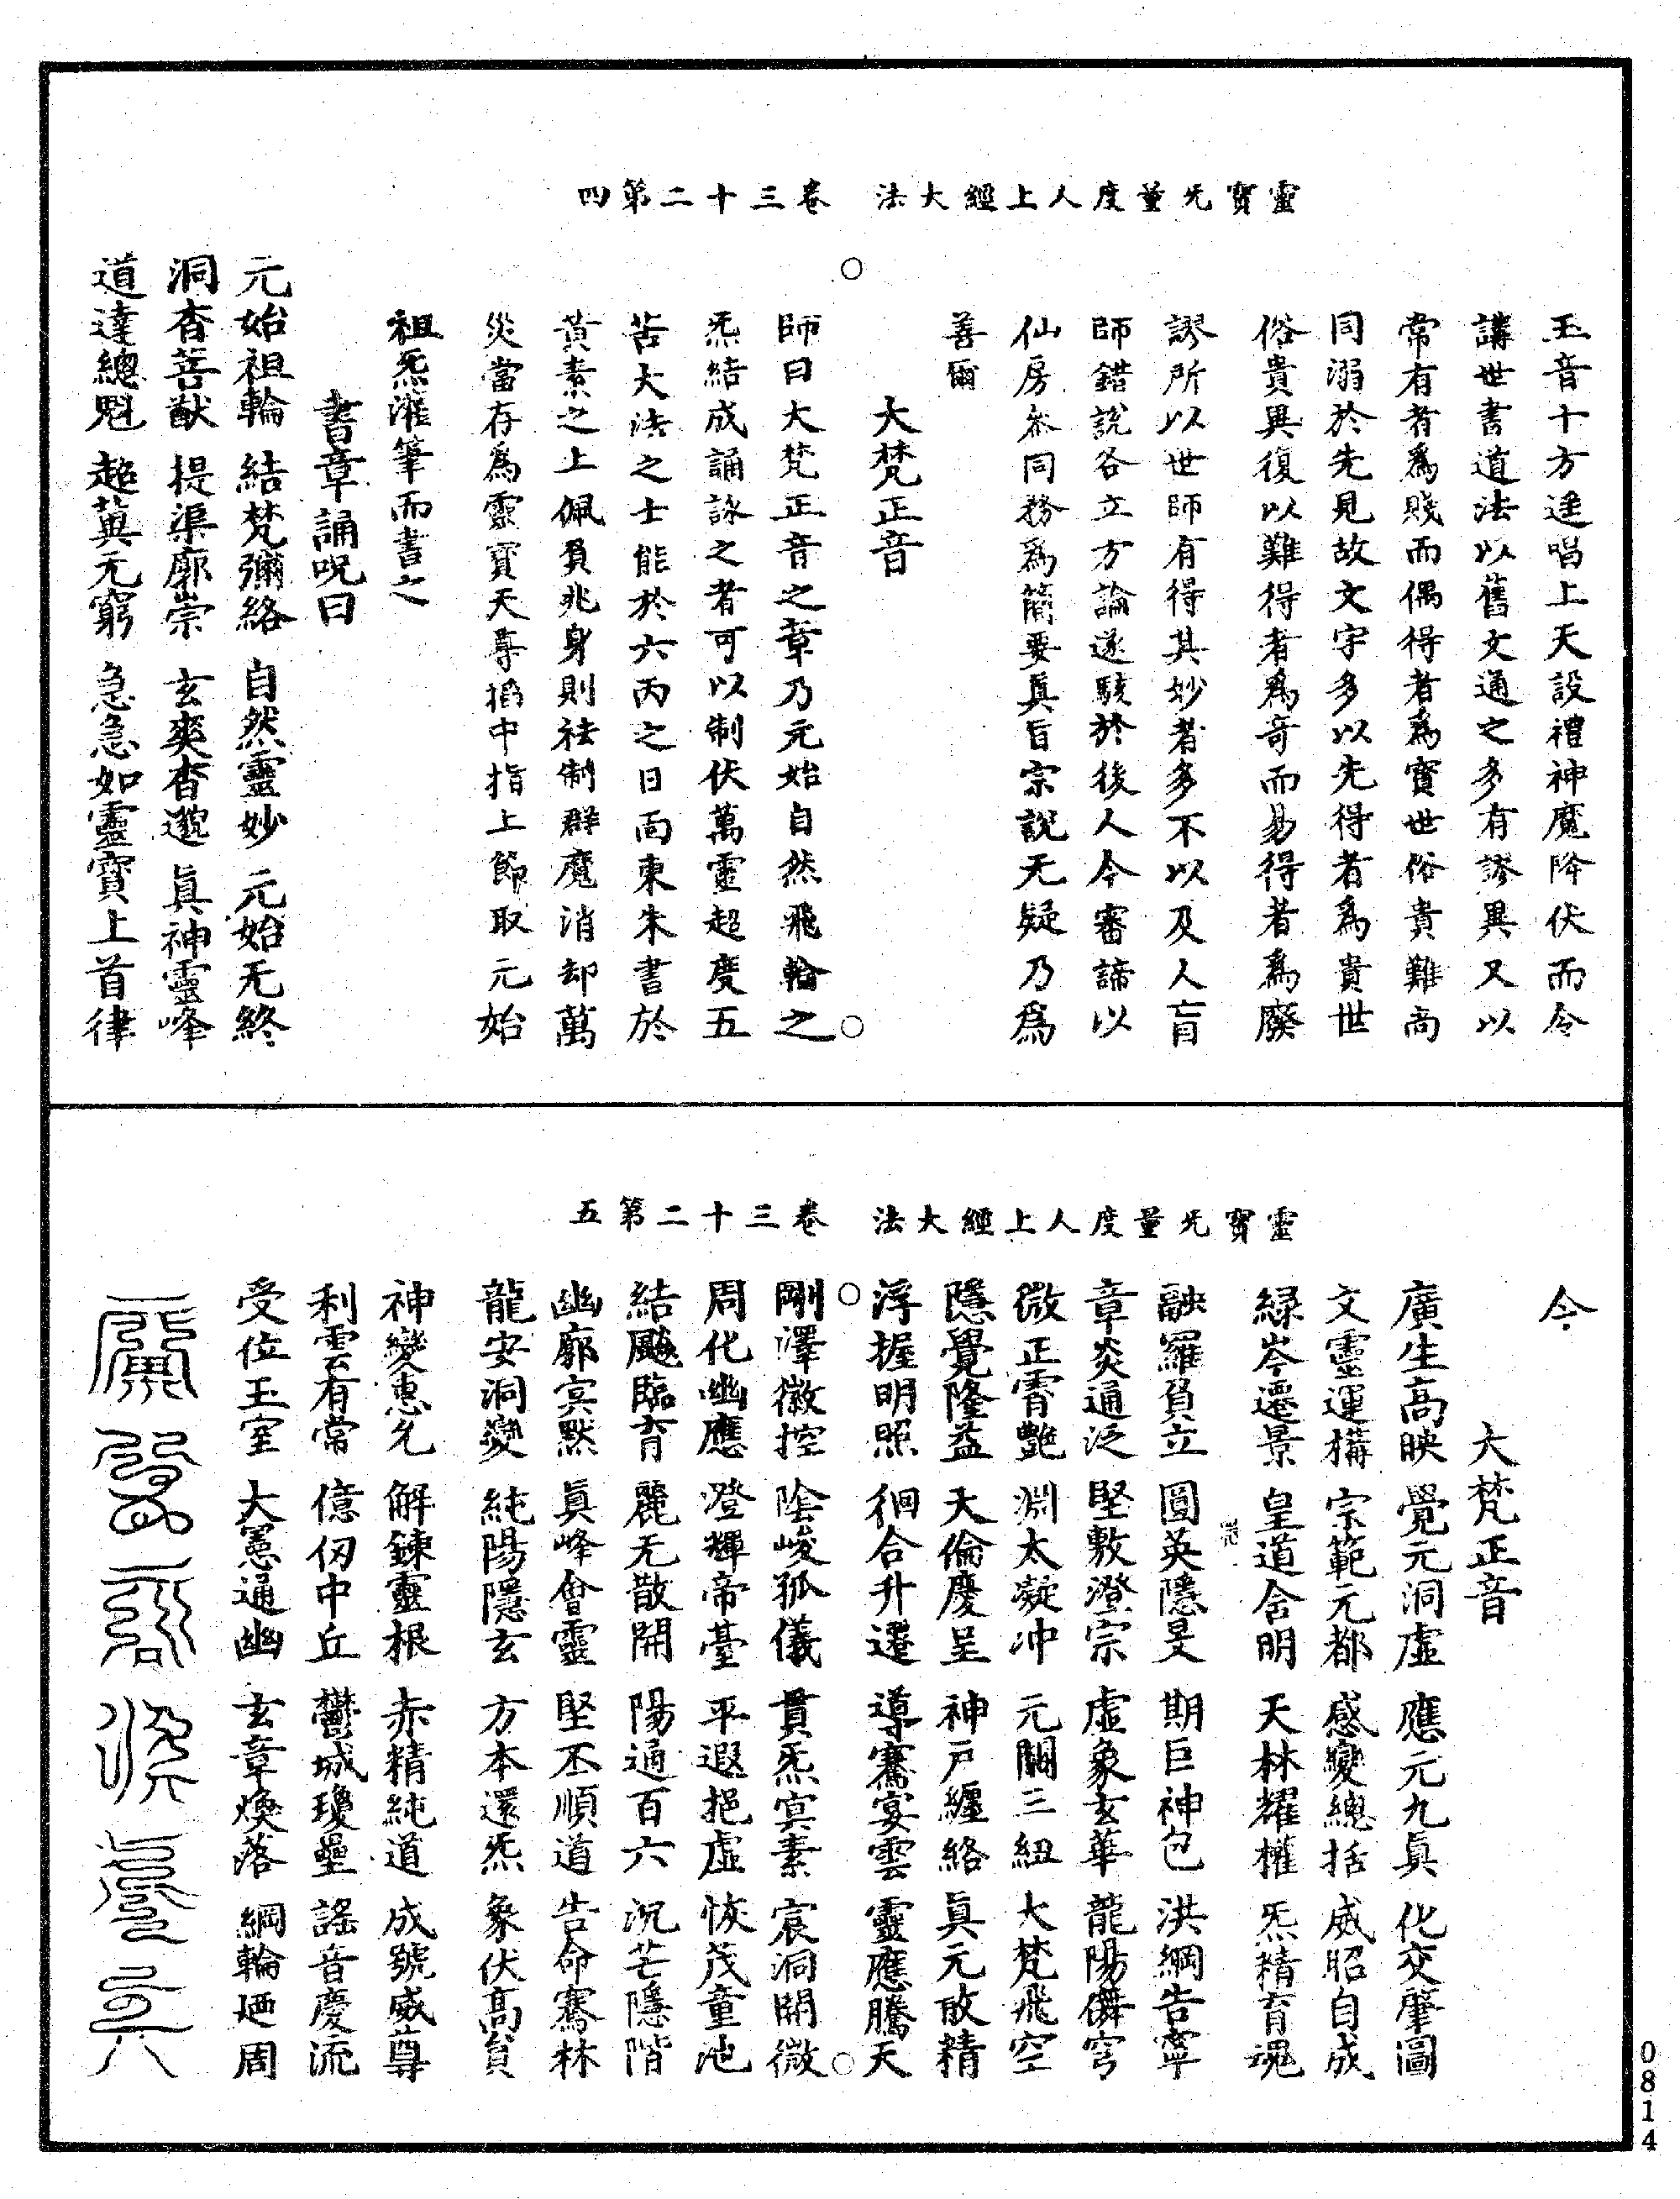 靈寶无量度人上經大法　卷三十二第四
玉音十方逹唱上天設禮神魔降伏而令
講世書道法以舊文通之多有謬異又以
常有者爲賤而偶得者爲寶世俗貴難而
同溺於先見故文字多以先得者爲貴世
俗貴異復以難得者爲奇而易得者爲廢
謬所以世師有得其妙者多不以及人盲
師錯說各立方論遂駭於後人今審諦以
仙房叅同務爲簡要眞旨宗說无疑乃爲
善爾
大梵正音
師曰大梵正音之章乃元始自然飛輪之
炁結成誦詠之者可以制伏萬靈超度五
苦大法之士能於六丙之日面東朱書於
黃素之上佩負兆身則袪制群魔消却萬
災當存爲靈寶天尊搯中指上節取元始
祖炁灌筆而書之
書章誦呪曰
元始祖輪　結梵彌絡　自然靈妙　元始无終
洞杳菩猷　提渠廓崇　玄爽杳邈　眞神靈峰
道達總魁　超冀无窮　急急如靈寶上首律
靈寶无量度人上經大法　卷三十二第五
令
大梵正音
廣生高映　覺元洞虛　應元九眞　化交肇圖
文靈運構　宗範元都　感變總括　威昭自成
緑岑遷景　皇道含明　天林耀權　炁精育魂
融羅負立　圓英隱旻　期巨神包　洪綱告寧
章炎通泛　堅敷澄宗　虛象玄華　龍陽𠐺穹
微正霄艶　淵太凝冲　元關三紐　大梵飛空
隱覺隆益　天倫慶呈　神戸纏絡　眞元敢精
浮握明照　徊合升遷　導騫宴雲　靈應騰天
剛澤徽控　陰峻孤儀　貫炁㝠素　宸洞開微
周化幽應　澄輝帝臺　平遐挹虛　恢茂童池
結颷臨育　麗无散開　陽通百六　沉芒隱階
幽廓㝠默　眞峰會靈　堅丕順道　告命騫林
龍安洞變　純陽隱玄　方本還炁　象伏髙負
神變惠允　解鍊靈根　赤精純道　成號威尊
利雲有常　億仞中丘　鬱城瓊壘　謠音慶流
受位玉室　大憲通幽　玄章煥落　綱輪廼周
0814